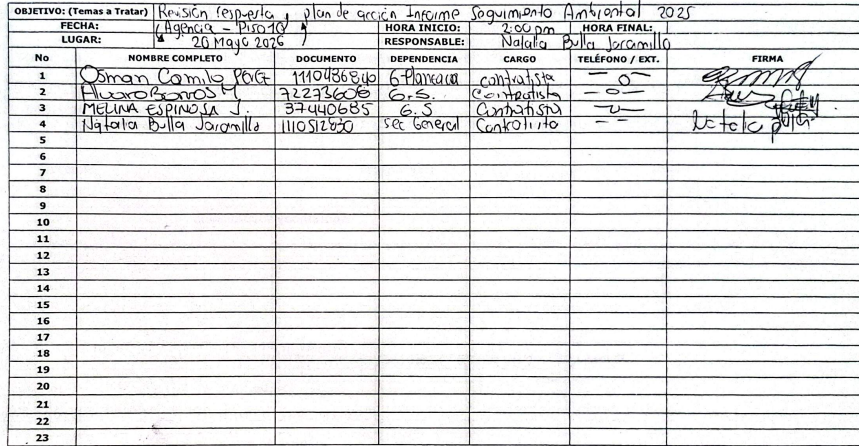 OBJETIVO: (Temas a Tratar) Revisión respuesta y plan de acción Informe Seguimiento Ambiental 2025
FECHA: (Agencia - Piso 10) HORA INICIO: 2:00 pm HORA FINAL:
LUGAR: 20 Mayo 2026 RESPONSABLE: Natalia Bulla Jaramillo
No NOMBRE COMPLETO DOCUMENTO DEPENDENCIA CARGO TELÉFONO / EXT. FIRMA
1 Osman Camilo contratista
2 Alvaro Barros M 72273606 G.S. Contratista
3 MELINA ESPINOSA J. 37440685 G.S Contratista
4 Natalia Bulla Jaramillo 1110512830 Sec General Contratista
5
6
7
8
9
10
11
12
13
14
15
16
17
18
19
20
21
22
23